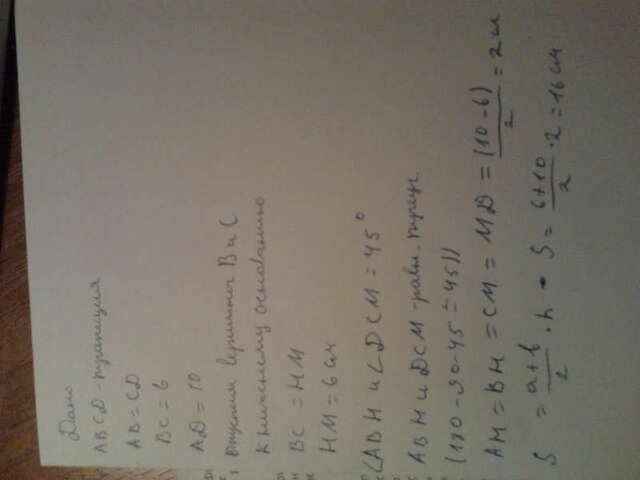 Дано
ABCD - трапеция
AB = CD
BC = 6
AD = 10
Опустим вершины B и C
к нижнему основанию
BC = HM
HM = 6 см
∠ABH и ∠DCM = 45°
ABH и DCM - равн. треуг.
(180-90-45=45))
AH = BH = CM = MD = (10-6)/2 = 2 см
S = (a+b)/2 · h • S = (6+10)/2 · 2 = 16 см